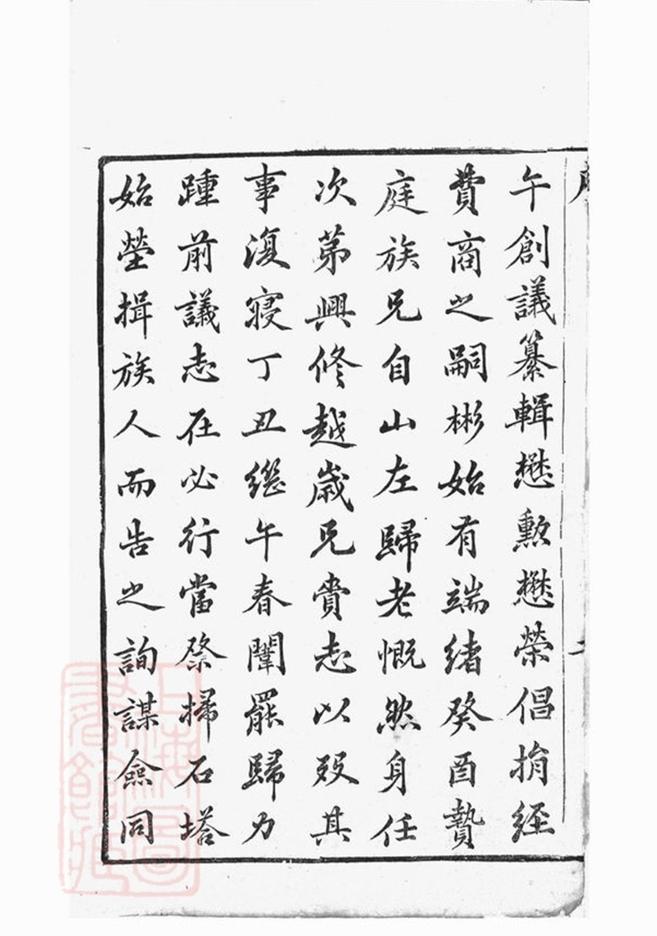 午創議纂輯懋勲懋榮倡捐經
費商之嗣彬始有端緒癸酉贄
庭族兄自山左歸老慨然身任
次苐興修越歲兄賫志以歿其
事復寢丁丑繼午春闈罷歸力
踵前議志在必行當祭掃石塔
始塋揖族人而告之詢謀僉同